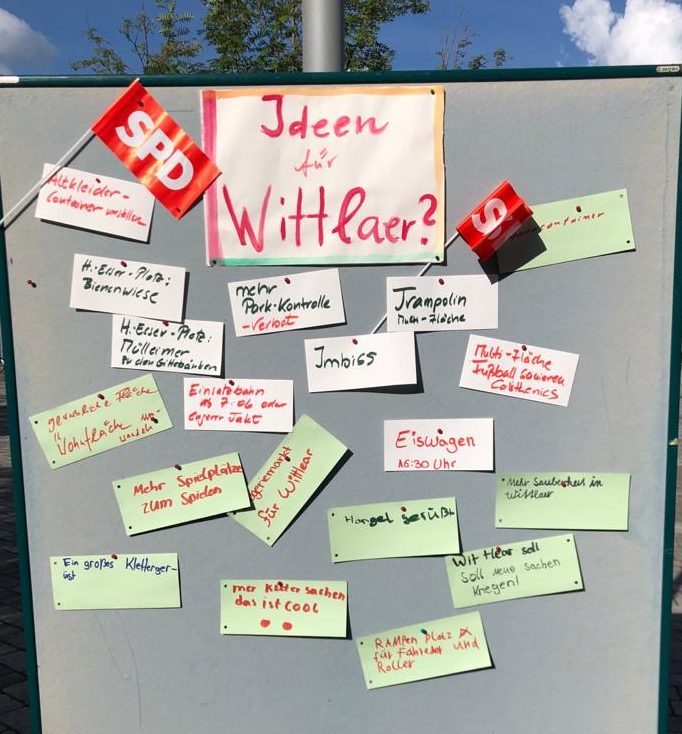 Ideen
für
Wittlaer?
SPD
Altkleider-
Container umstellen
H.-Esser-Platz:
Bienenwiese
mehr
Park-Kontrolle
-Verbot
Trampolin
Multi-Fläche
H.-Esser-Platz:
Mülleimer
Imbiss
Multi-Fläche
fußball
Calisthenics
gewerbliche Fläche
in
Wohnfläche um-
wandeln
Einsatzbahn
ab 7:06 oder
engerer Takt
Eiswagen
16:30 Uhr
Mehr Spielplätze
zum Spielen
für Wittlaer
Mehr Sauberkeit in
Wittlaer
Hangel gerüßt
Ein großes Kletterger-
üst
Wit tlear soll
soll neue sachen
kriegen!
mer Kätter sachen
das ist cool
RAMPen platz
für Fahredet und
Roller